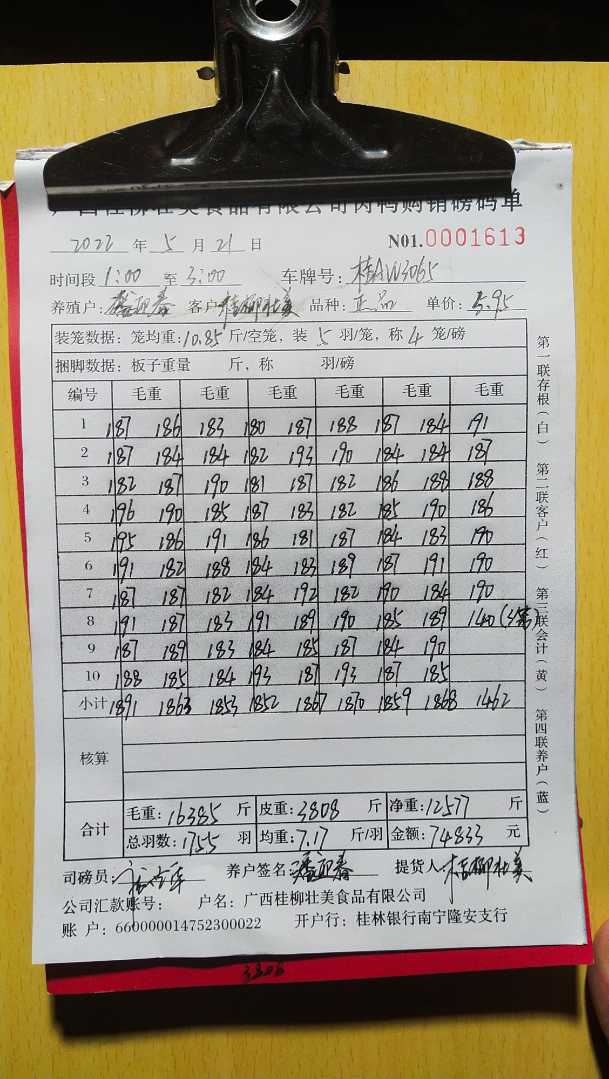 广西桂柳壮美食品有限公司肉鸭购销磅码单
2022 年 5 月 21 日 N01.0001613
时间段 1:00 至 3:00 车牌号: 桂AW3065
养殖户: 潘迎春 客户 桂柳壮美 品种: 正品 单价: 5.95
装笼数据: 笼均重: 10.85 斤/空笼, 装 5 羽/笼, 称 4 笼/磅
捆脚数据: 板子重量 斤, 称 羽/磅
编号 毛重 毛重 毛重 毛重 毛重
1 187 186 183 180 187 188 187 184 191
2 187 184 184 182 193 190 184 184 187
3 182 187 190 181 187 182 186 188 188
4 196 190 185 187 183 182 185 190 186
5 195 186 191 186 181 187 184 183 190
6 191 182 188 184 183 189 187 191 190
7 187 187 182 184 192 182 190 184 190
8 191 187 183 191 189 190 185 189 140 (3笼)
9 187 189 183 184 185 187 184 190
10 188 185 184 193 187 193 187 185
小计 1891 1863 1853 1852 1867 1870 1859 1868 1462
核算
合计 毛重: 16385 斤 皮重: 3808 斤 净重: 12577 斤
总羽数: 1755 羽 均重: 7.17 斤/羽 金额: 74833 元
司磅员: 养户签名: 潘迎春 提货人: 桂柳壮美
公司汇款账号: 户名: 广西桂柳壮美食品有限公司
账 户: 660000014752300022 开户行: 桂林银行南宁隆安支行
第一联存根(白) 第二联客户(红) 第三联会计(黄) 第四联养户(蓝)